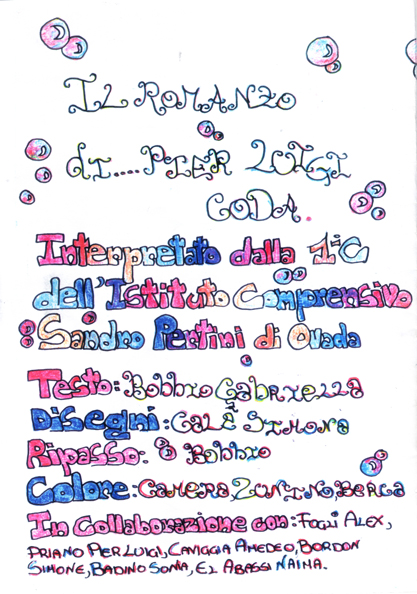 IL ROMANZO
di.... PIER LUIGI
CODA.
Interpretato dalla 1°C
dell'Istituto Comprensivo
Sandro Pertini di Ovada
Testo: Bobbio Gabriella
Disegni: CALÈ SIMONA
Ripasso: Bobbio
Colore: CAMERA ZUNINO BERCA
In Collaborazione con: FOGLI ALEX,
PRIANO PIER LUIGI, CAVIGGIA AMEDEO, BORDON
SIMONE, BADINO SONIA, EL ABASSI NAIMA.